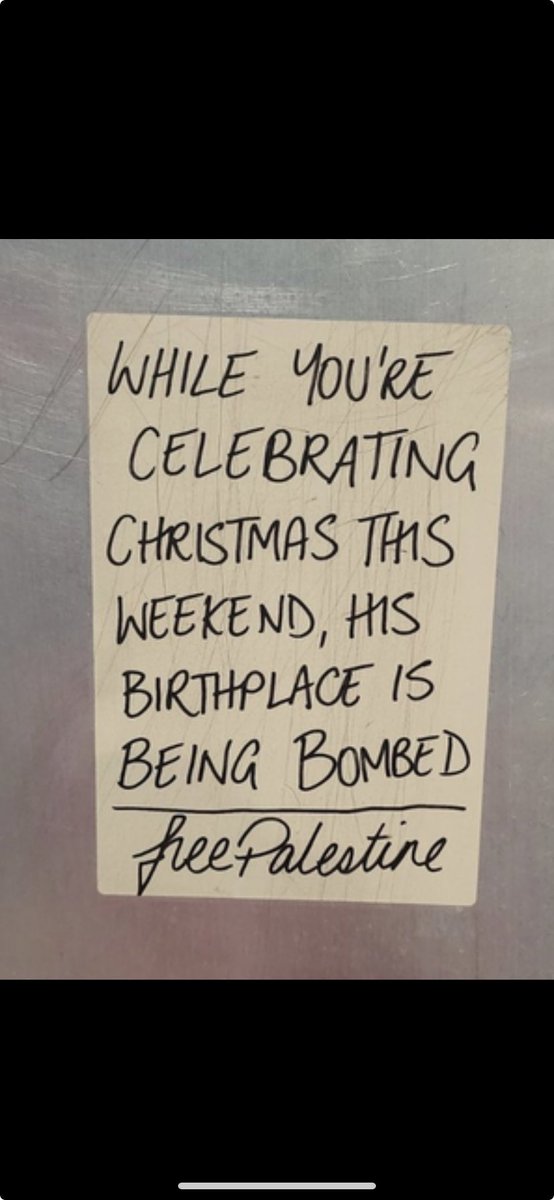 WHILE YOU'RE
CELEBRATING
CHRISTMAS THIS
WEEKEND, HIS
BIRTHPLACE IS
BEING BOMBED
free Palestine